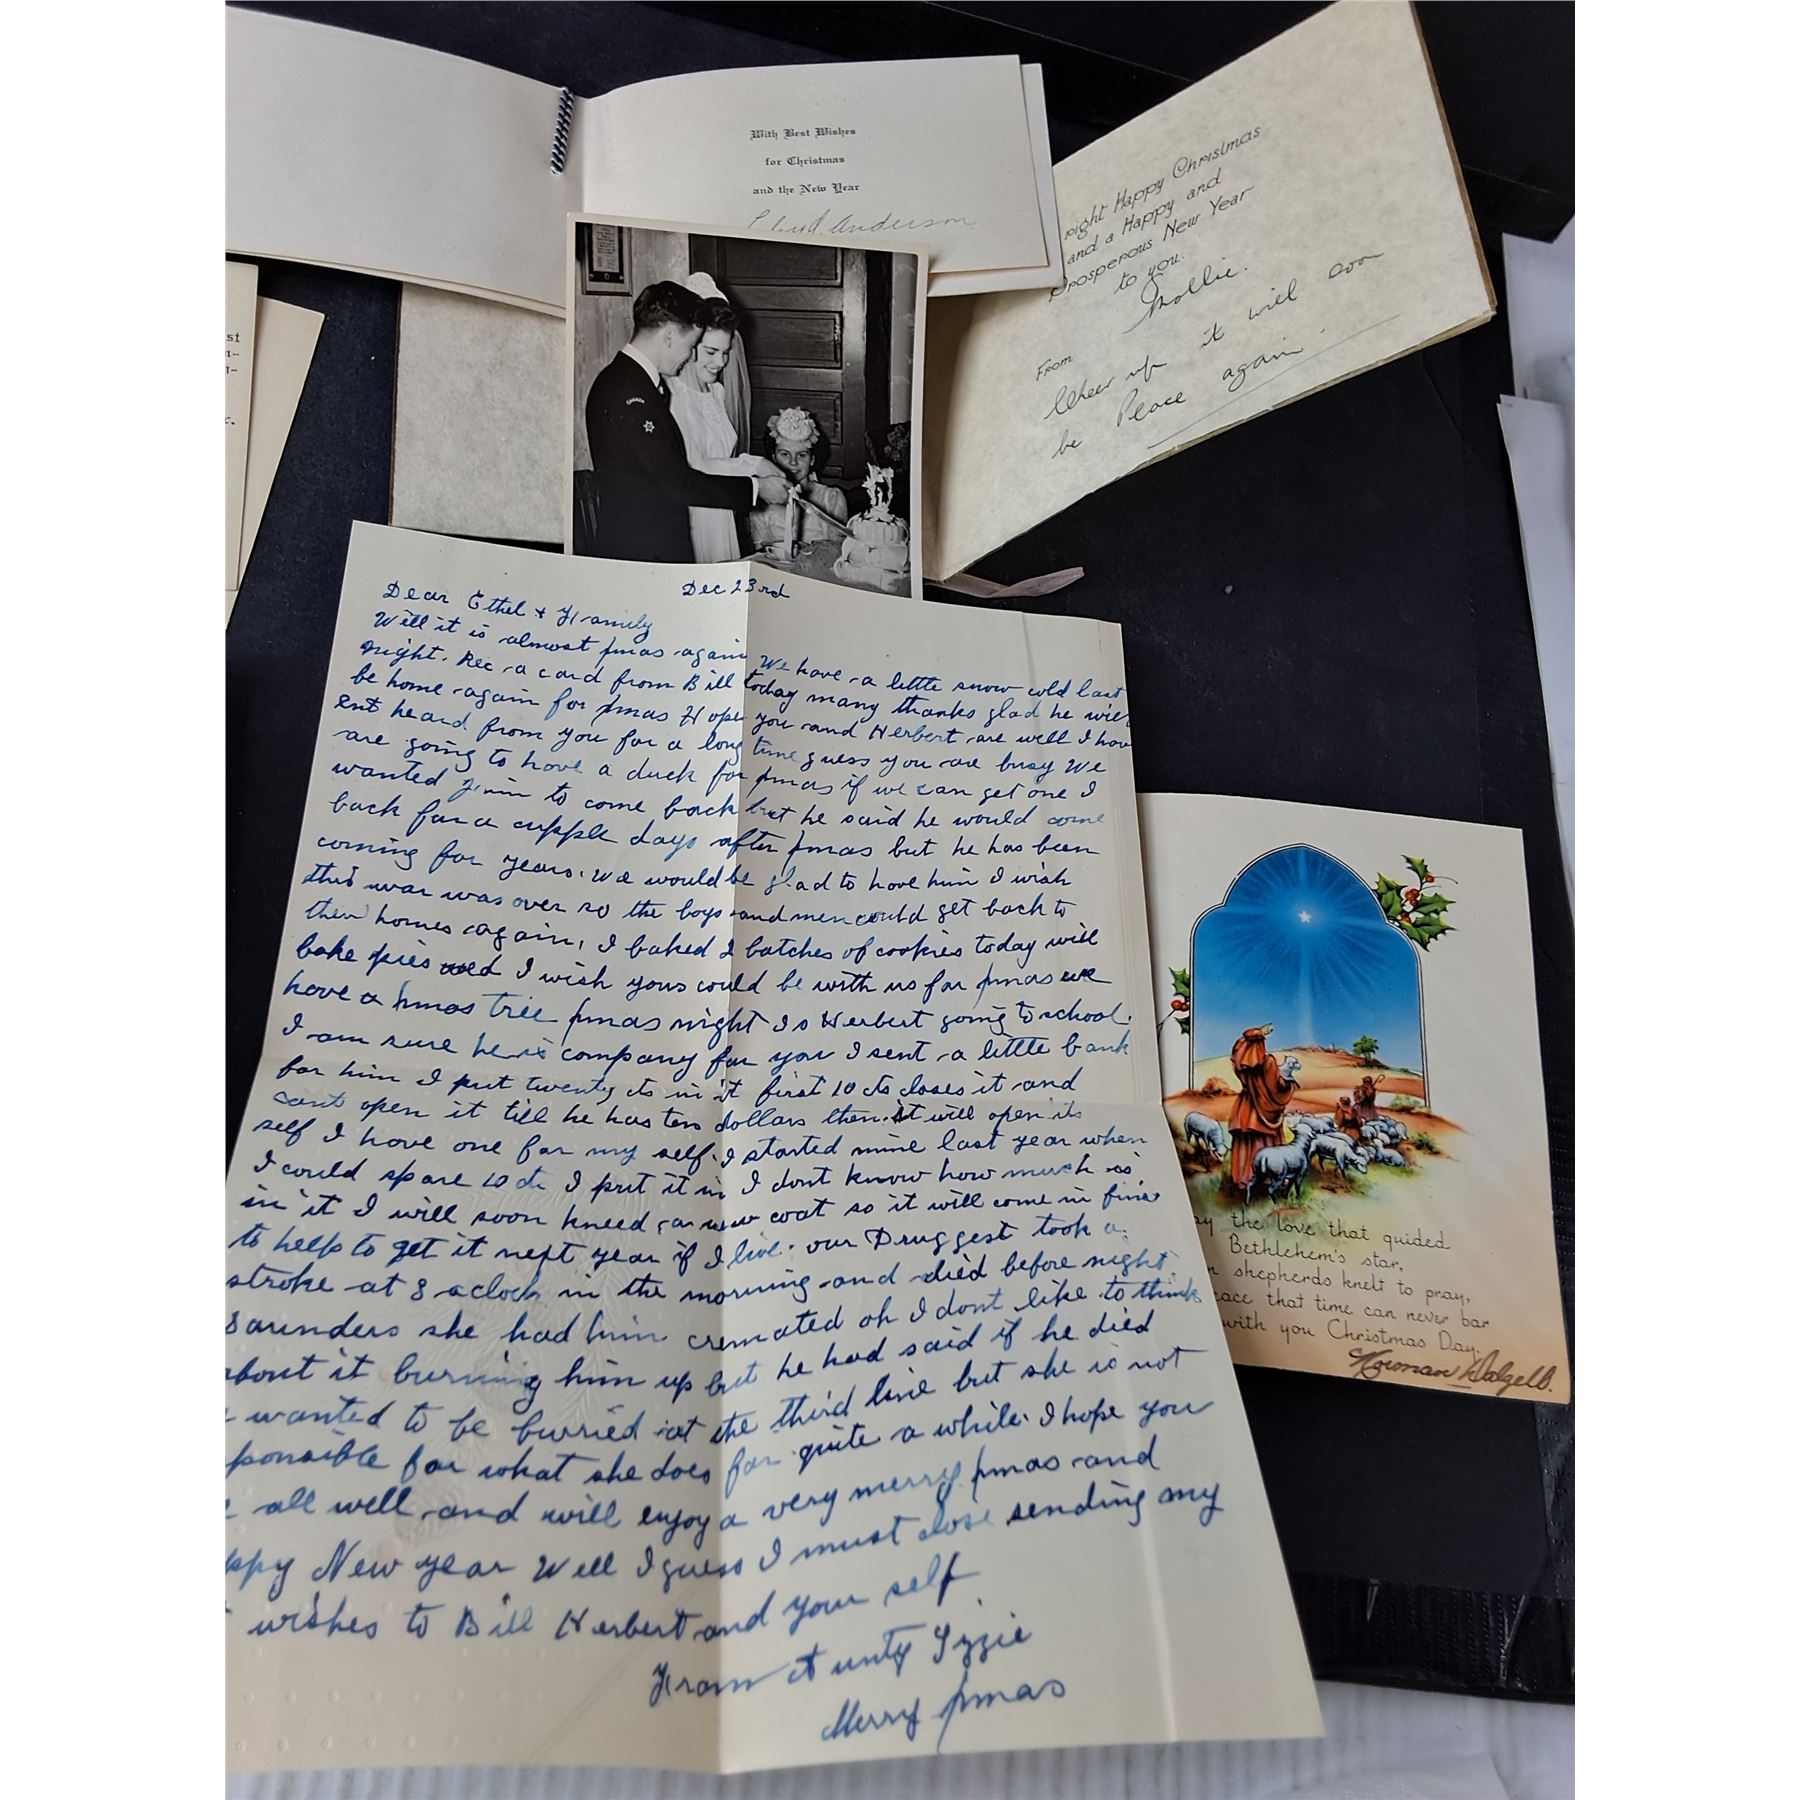 With Best Wishes
for Christmas
and the New Year
Anderson
right Happy Christmas
and a Happy and
Prosperous New Year
to you.
From Mollie.
Cheer up it will soon
be Peace again
st
r.
CANADA
Dec 23rd
Dear Ethel & Family
Well it is almost xmas again We have a little snow cold last
night. Rec a card from Bill today many thanks glad he will
be home again for xmas Hope you and Herbert are well I hav
ent heard from you for a long time guess you are busy We
are going to have a duck for xmas if we can get one I
wanted Jim to come back but he said he would come
back for a cupple days after xmas but he has been
coming for years. We would be glad to have him I wish
this war was over so the boys and men could get back to
their homes again, I baked 2 batches of cookies today will
bake pies wed I wish yous could be with us for xmas we
have a xmas tree xmas night Is Herbert going to school.
I am sure he is company for you I sent a little bank
for him I put twenty cts in it first 10 cts closes it and
cant open it till he has ten dollars then it will open its
self I have one for my self. I started mine last year when
I could spare 10 cts I put it in I dont know how much is
in it I will soon kneed a new coat so it will come in fine
to help to get it next year if I live. our Druggest took a
stroke at 8 aclock in the morning and died before night
Saunders she had him cremated oh I dont like to think
about it burning him up but he had said if he died
wanted to be burried at the third line but she is not
ponsible for what she does for quite a while. I hope you
all well and will enjoy a very merry xmas and
ppy New year Well I guess I must close sending my
wishes to Bill Herbert and your self
From Aunty Lizzie
Merry xmas
ay the love that guided
Bethlehem's star,
n shepherds knelt to pray,
eace that time can never bar
with you Christmas Day.
Norman Dalzell.